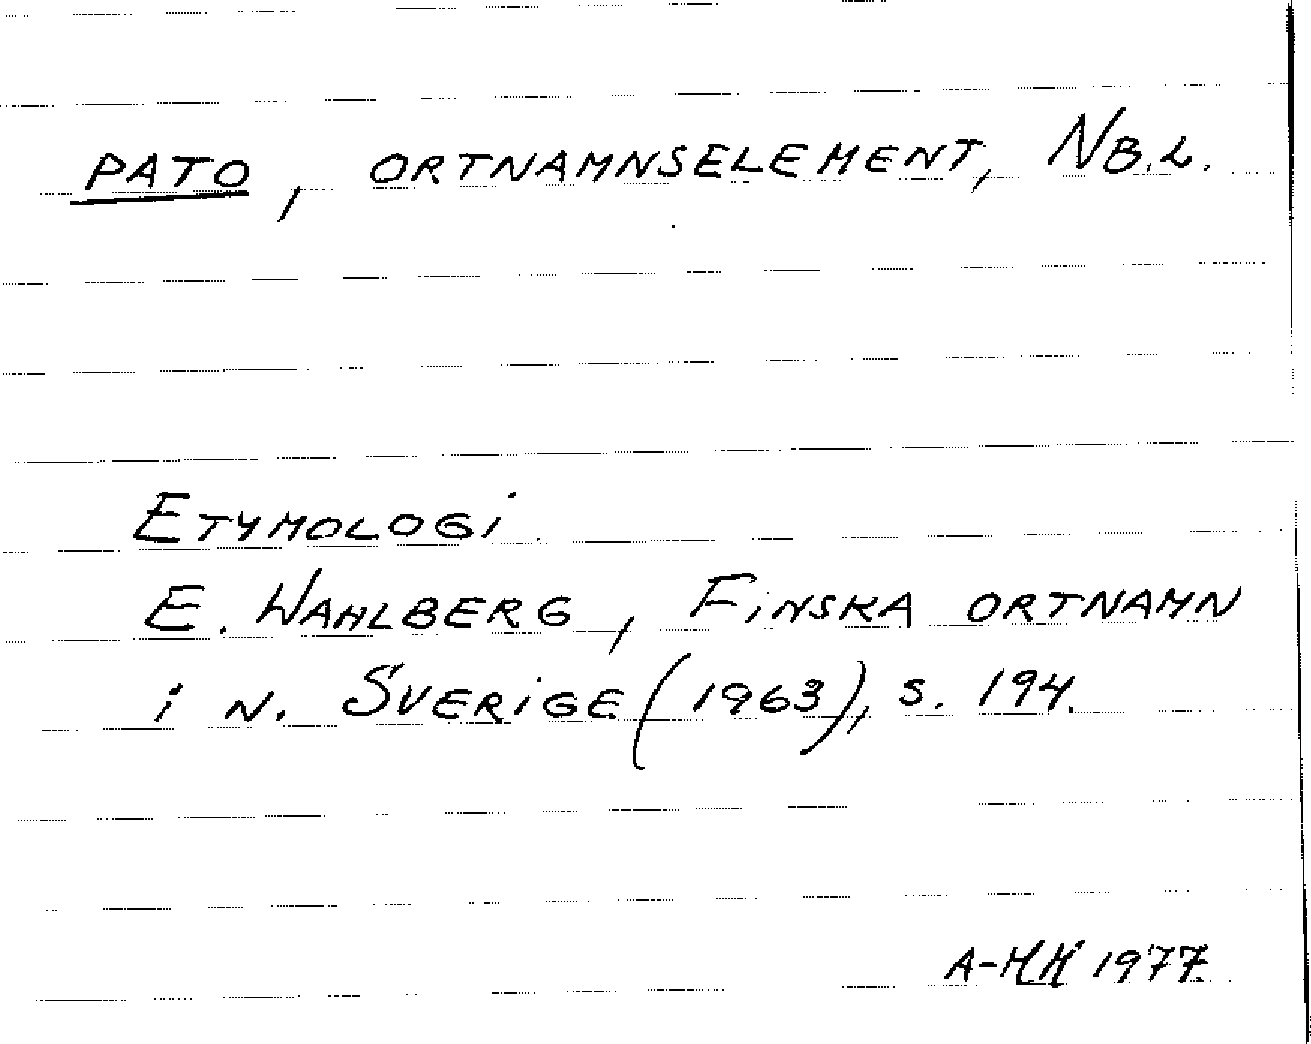 PATO, ORTNAMNSELEMENT, NB.L.
ETYMOLOGI
E. WAHLBERG, FINSKA ORTNAMN
i N. SVERIGE (1963), S. 194.
A-MH 1977.